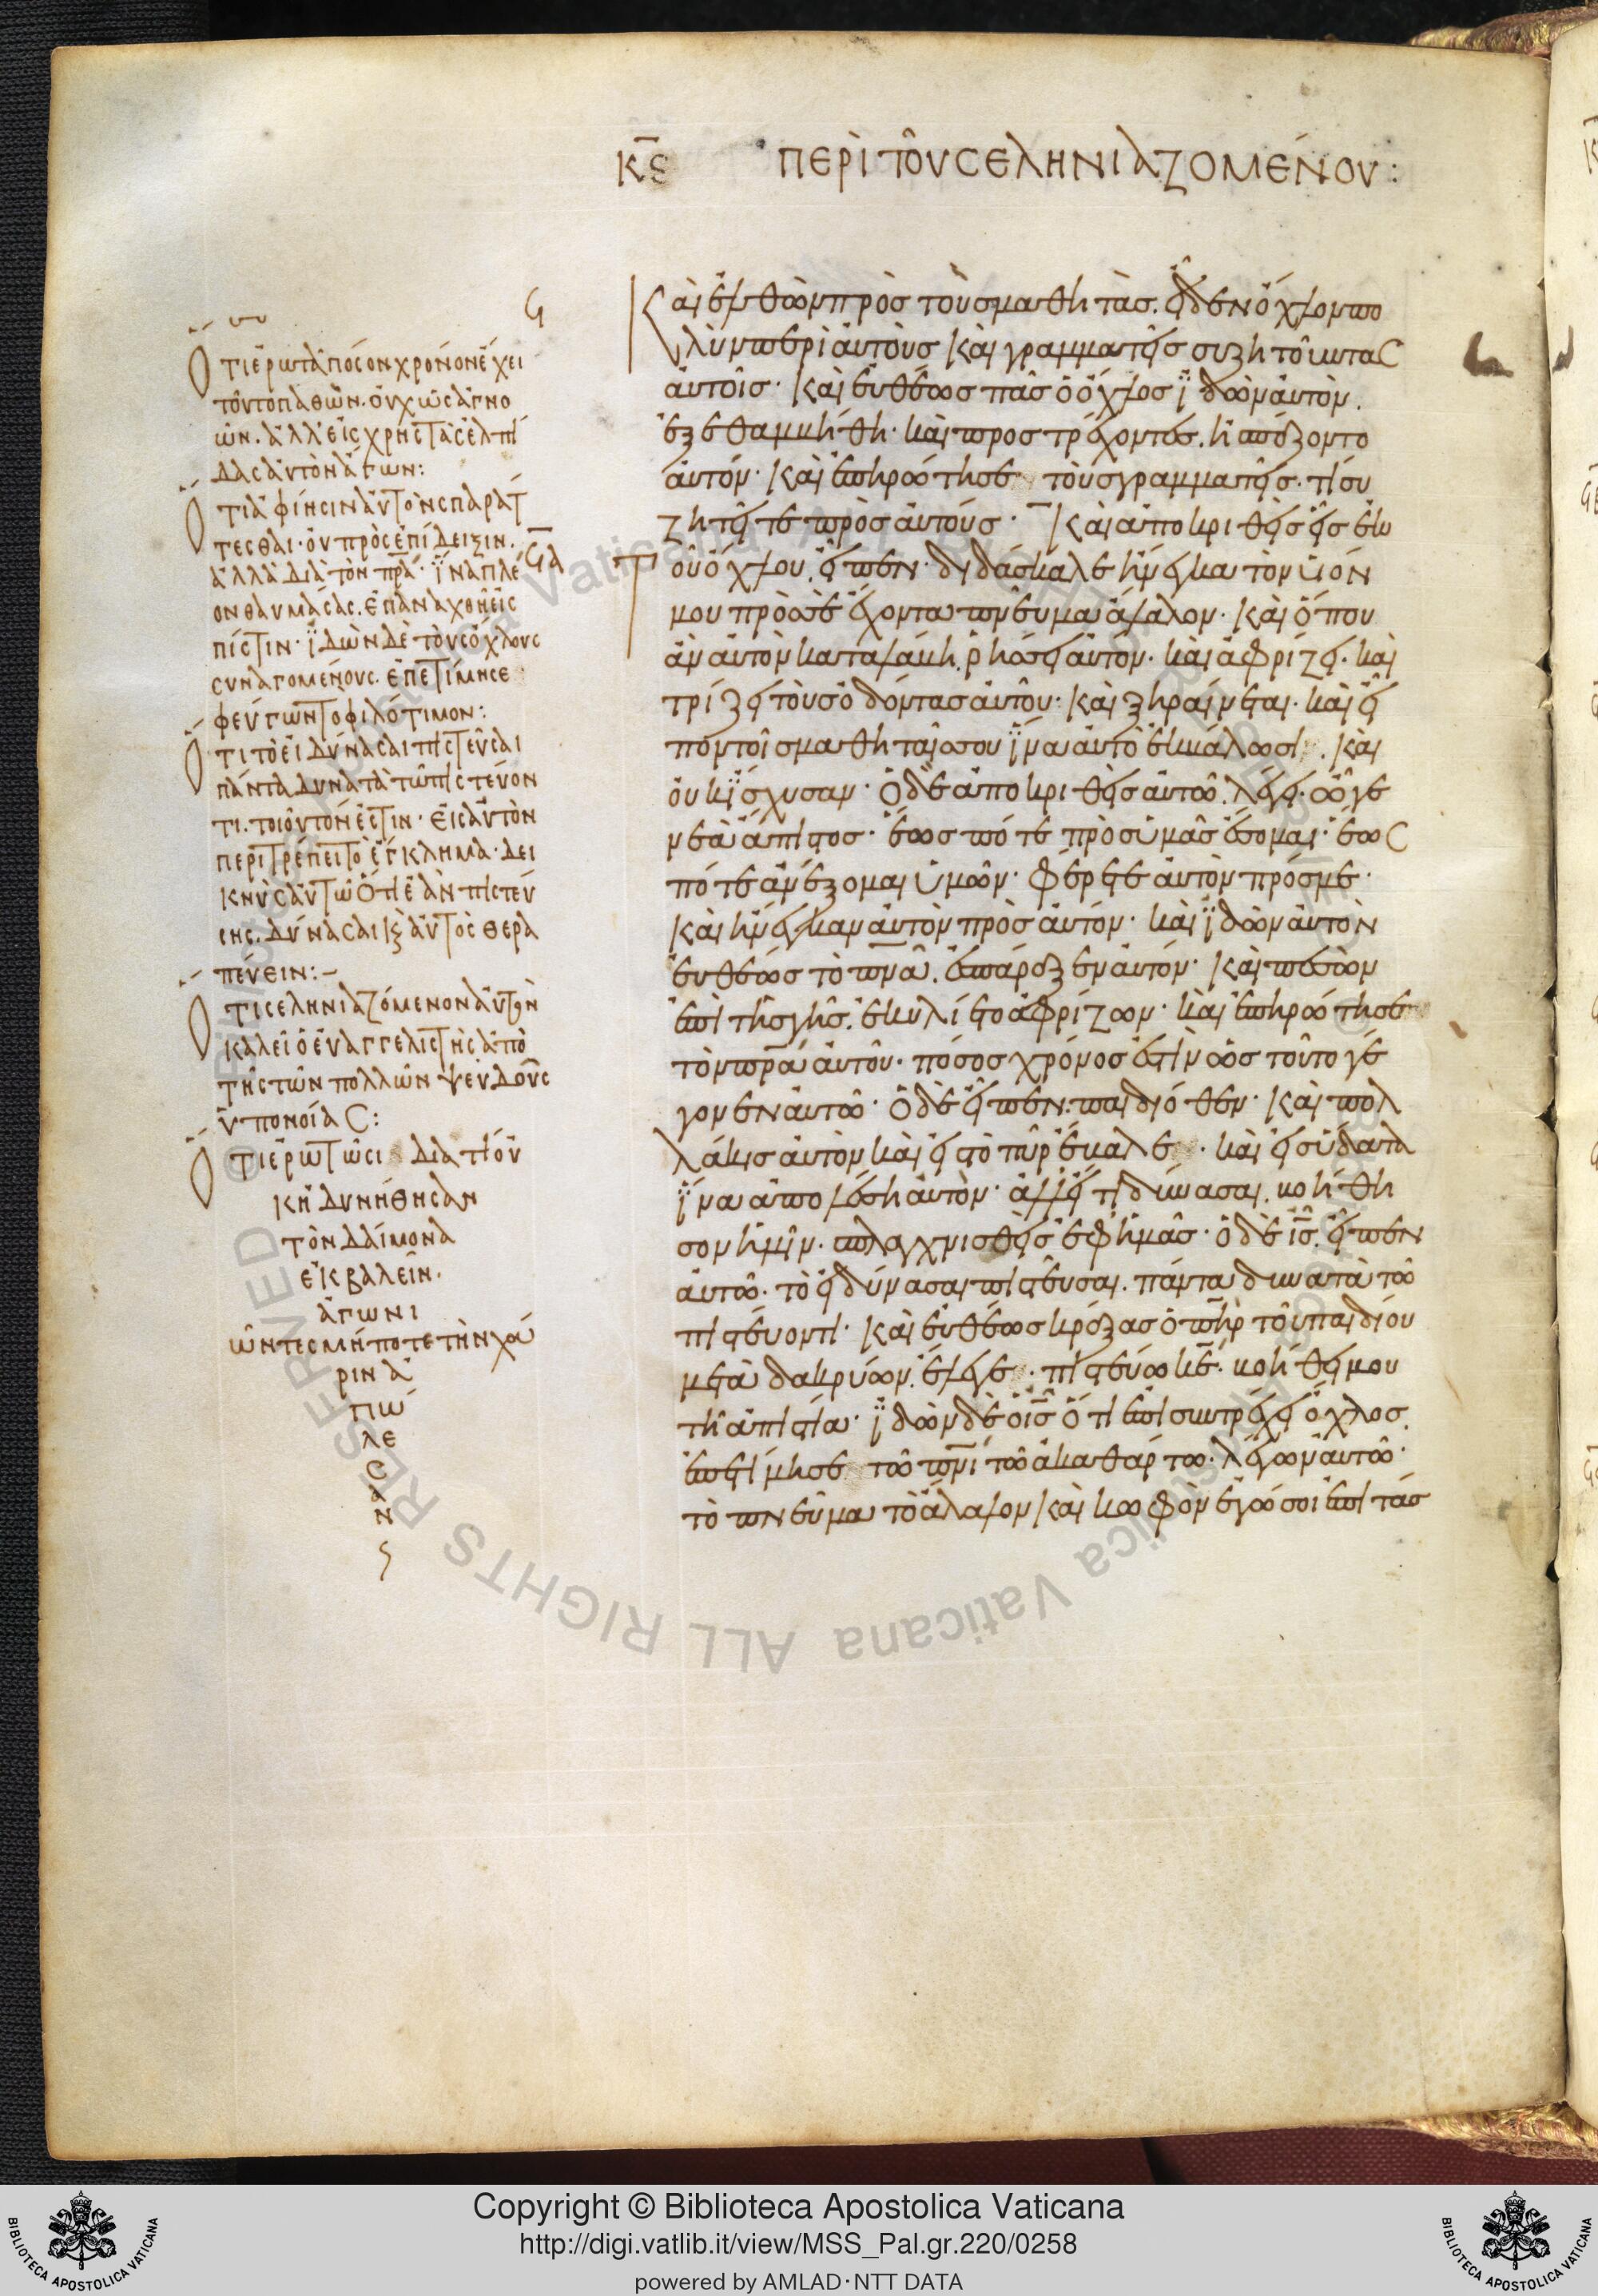 κ̅ε̅ ΠΕΡὶ ΤΟῦ CΕΛΗΝΙΑΖΟΜΈΝΟΥ:
Καὶ ἐλθὼν πρὸς τοὺς μαθητὰς. εἶδεν ὄχλον πο
λὺν περὶ αὐτοὺς καὶ γραμματεῖς συζητοῦντας
αὐτοῖς· καὶ εὐθέως πᾶς ὁ ὄχλος ἰδὼν αὐτὸν.
ἐξεθαμβήθη· καὶ προστρέχοντες. ἠσπάζοντο
αὐτόν· καὶ ἐπηρώτησε τοὺς γραμματεῖς· τί συ
ζητεῖτε πρὸς αὐτούς· Καὶ ἀποκριθεὶς εἷς ἐκ
τοῦ ὄχλου. εἶπεν· διδάσκαλε ἤνεγκα τὸν υἱόν
μου πρὸς σὲ ἔχοντα πνεῦμα ἄλαλον· καὶ ὅπου
ἂν αὐτὸν καταλάβη. ῥήσσει αὐτόν· καὶ ἀφρίζει· καὶ
τρίζει τοὺς ὀδόντας αὐτοῦ· καὶ ξηραίνεται· καὶ εἶ
πον τοῖς μαθηταῖς σου ἵνα αὐτὸ ἐκβάλωσι. καὶ
οὐκ ἴσχυσαν· Ὁ δὲ ἀποκριθεὶς αὐτῶ. λέγει· ὦ γε
νεὰ ἄπιστος· ἕως πότε πρὸς ὑμᾶς ἔσομαι· ἕως
πότε ἀνέξομαι ὑμῶν· φέρετε αὐτὸν πρός με·
καὶ ἤνεγκαν αὐτὸν πρὸς αὐτόν· καὶ ἰδὼν αὐτὸν
εὐθέως τὸ πν̅α̅. ἐσπάραξεν αὐτόν· καὶ πεσὼν
ἐπὶ τῆς γῆς. ἐκυλίετο ἀφρίζων· καὶ ἐπηρώτησε
τὸν π̅ρ̅α̅ αὐτοῦ· πόσος χρόνος ἐστὶν ὡς τοῦτο γέ
γονεν αὐτῶ· Ὁ δὲ εἶπεν. παιδιόθεν· καὶ πολ
λάκις αὐτὸν καὶ εἰς τὸ πῦρ ἔβαλε· καὶ εἰς ὕδατα
ἵνα ἀπολέση αὐτὸν· ἀλλ' εἴ τι δύνασαι. βοήθη
σον ἡμῖν. σπλαγχνισθεὶς ἐφ' ἡμᾶς· ὁ δὲ ι̅ς̅. εἶπεν
αὐτῶ· τὸ εἰ δύνασαι πιστεῦσαι. πάντα δυνατὰ τῶ
πιστεύοντι· καὶ εὐθέως κράξας ὁ π̅η̅ρ̅ τοῦ παιδίου
μετὰ δακρύων. ἔλεγε· πιστεύω κ̅ε̅· βοήθει μου
τῆ ἀπιστία· ἰδὼν δὲ ὁ ι̅ς̅ ὅτι ἐπισυντρέχει ὄχλος.
ἐπετίμησε τῶ πν̅ι̅ τῶ ἀκαθάρτω. λέγων αὐτῶ·
τὸ πνεῦμα τὸ ἄλαλον καὶ κωφὸν ἐγώ σοι ἐπιτάσ
Ὅτι ἐρωτᾶ πόσον χρόνον ἔχει
τοῦτο παθὼν. οὐχ ὡς ἀγνο
ῶν. ἀλλ' εἰς χρηστὰς ἐλπί
δας αὐτὸν ἄγων:
Ὅτι ἀφίησιν αὐτὸν σπαράτ
τεσθαι· οὐ πρὸς ἐπίδειξιν.
ἀλλὰ διὰ τὸν π̅ρ̅α̅· ἵνα πλέ
ον θαυμάσας. ἐπαναχθῆ εἰς
πίστιν· ἰδὼν δὲ τοὺς ὄχλους
συναγομένους. ἐπετίμησε
φεύγων τὸ φιλότιμον:
Ὅτι τὸ εἰ δύνασαι πιστεῦσαι
πάντα δυνατὰ τῶ πιστεύον
τι. τοιοῦτόν ἐστιν· εἰς αὐτὸν
περιτρέπει τὸ ἔγκλημα· δει
κνὺς αὐτῶ ὅτι ἐὰν πιστεύ
σης. δύνασαι κ(αὶ) αὐτὸς θερα
πεύειν:–
Ὅτι σεληνιαζόμενον αὐτὸν
καλεῖ ὁ εὐαγγελιστὴς ἀπὸ
τῆς τῶν πολλῶν ψευδοῦς
ὑπονοίας:
Ὅτι ἐρωτῶσι διατί οὐ
κ ἠδυνήθησαν
τὸν δαίμονα
ἐκβαλεῖν·
ἀγωνι
ῶντες μήποτε τὴν χά
ριν ἀ
πώ
λε
σ
α
ν